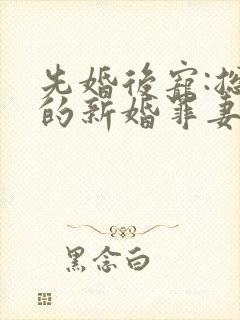 先婚後寵:
的新婚罪妻
黑念白